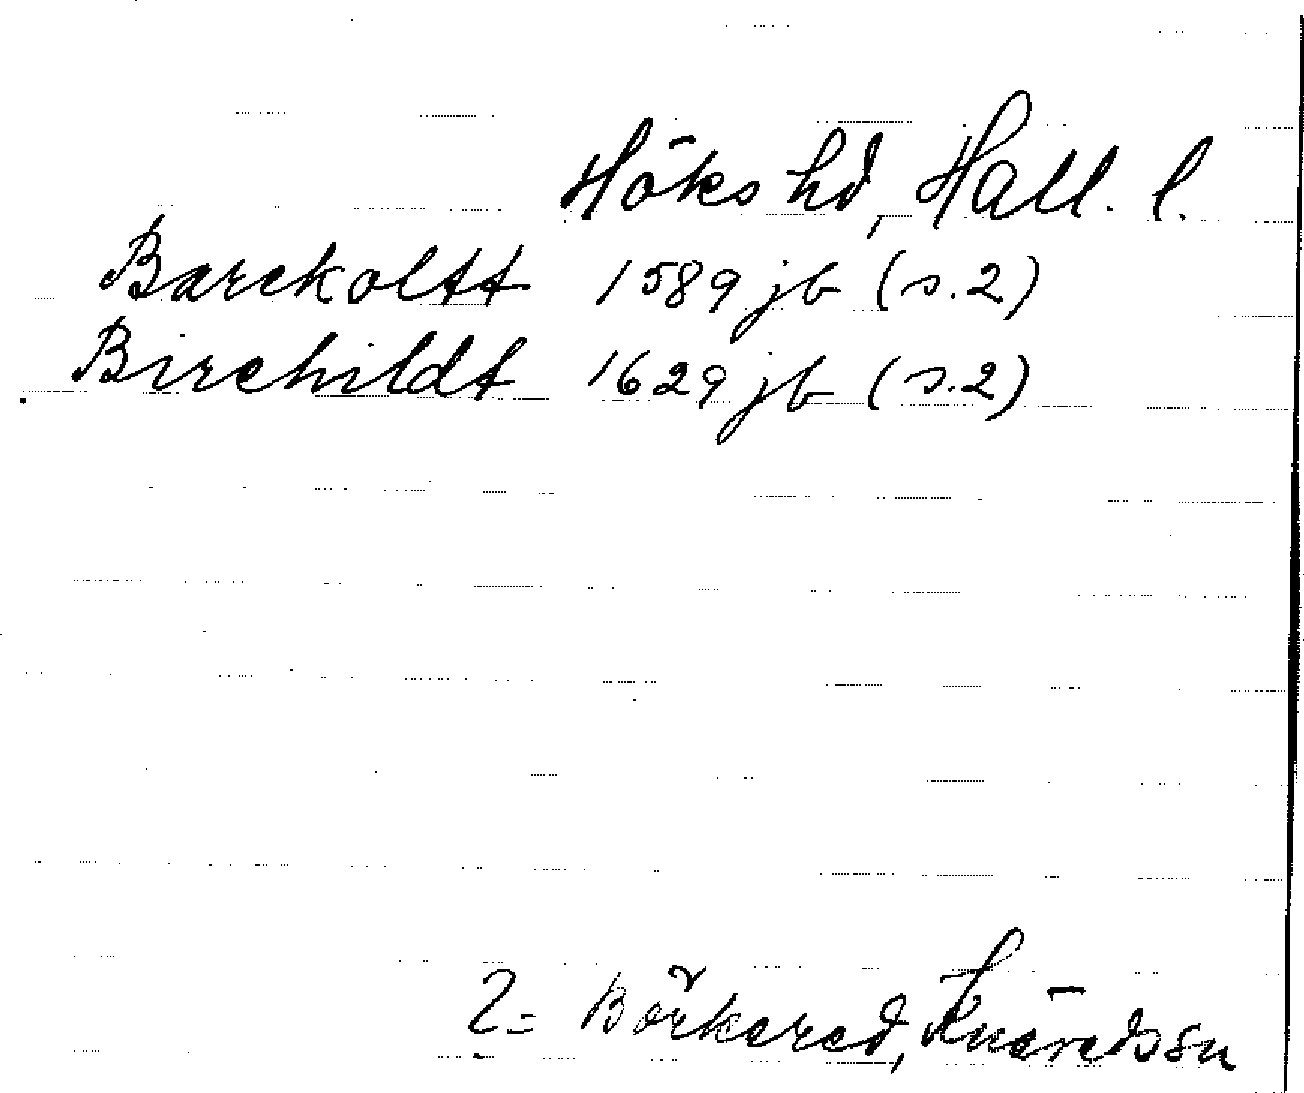 Höks hd, Hall. l.
Barckoltt 1589 jb (s. 2)
Birchildt 1629 jb (s. 2)
?= Börkered, Knäreds sn